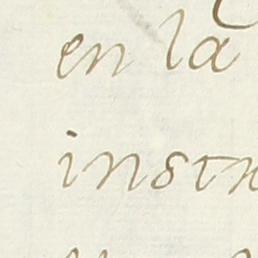 en la
instr